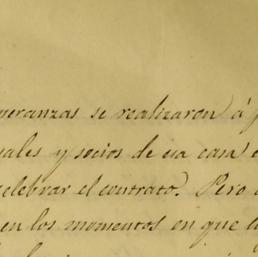 peranzas se realizaron á p
uales y socios de esa casa
celebrar el contrato. Pero
en los momentos en que l